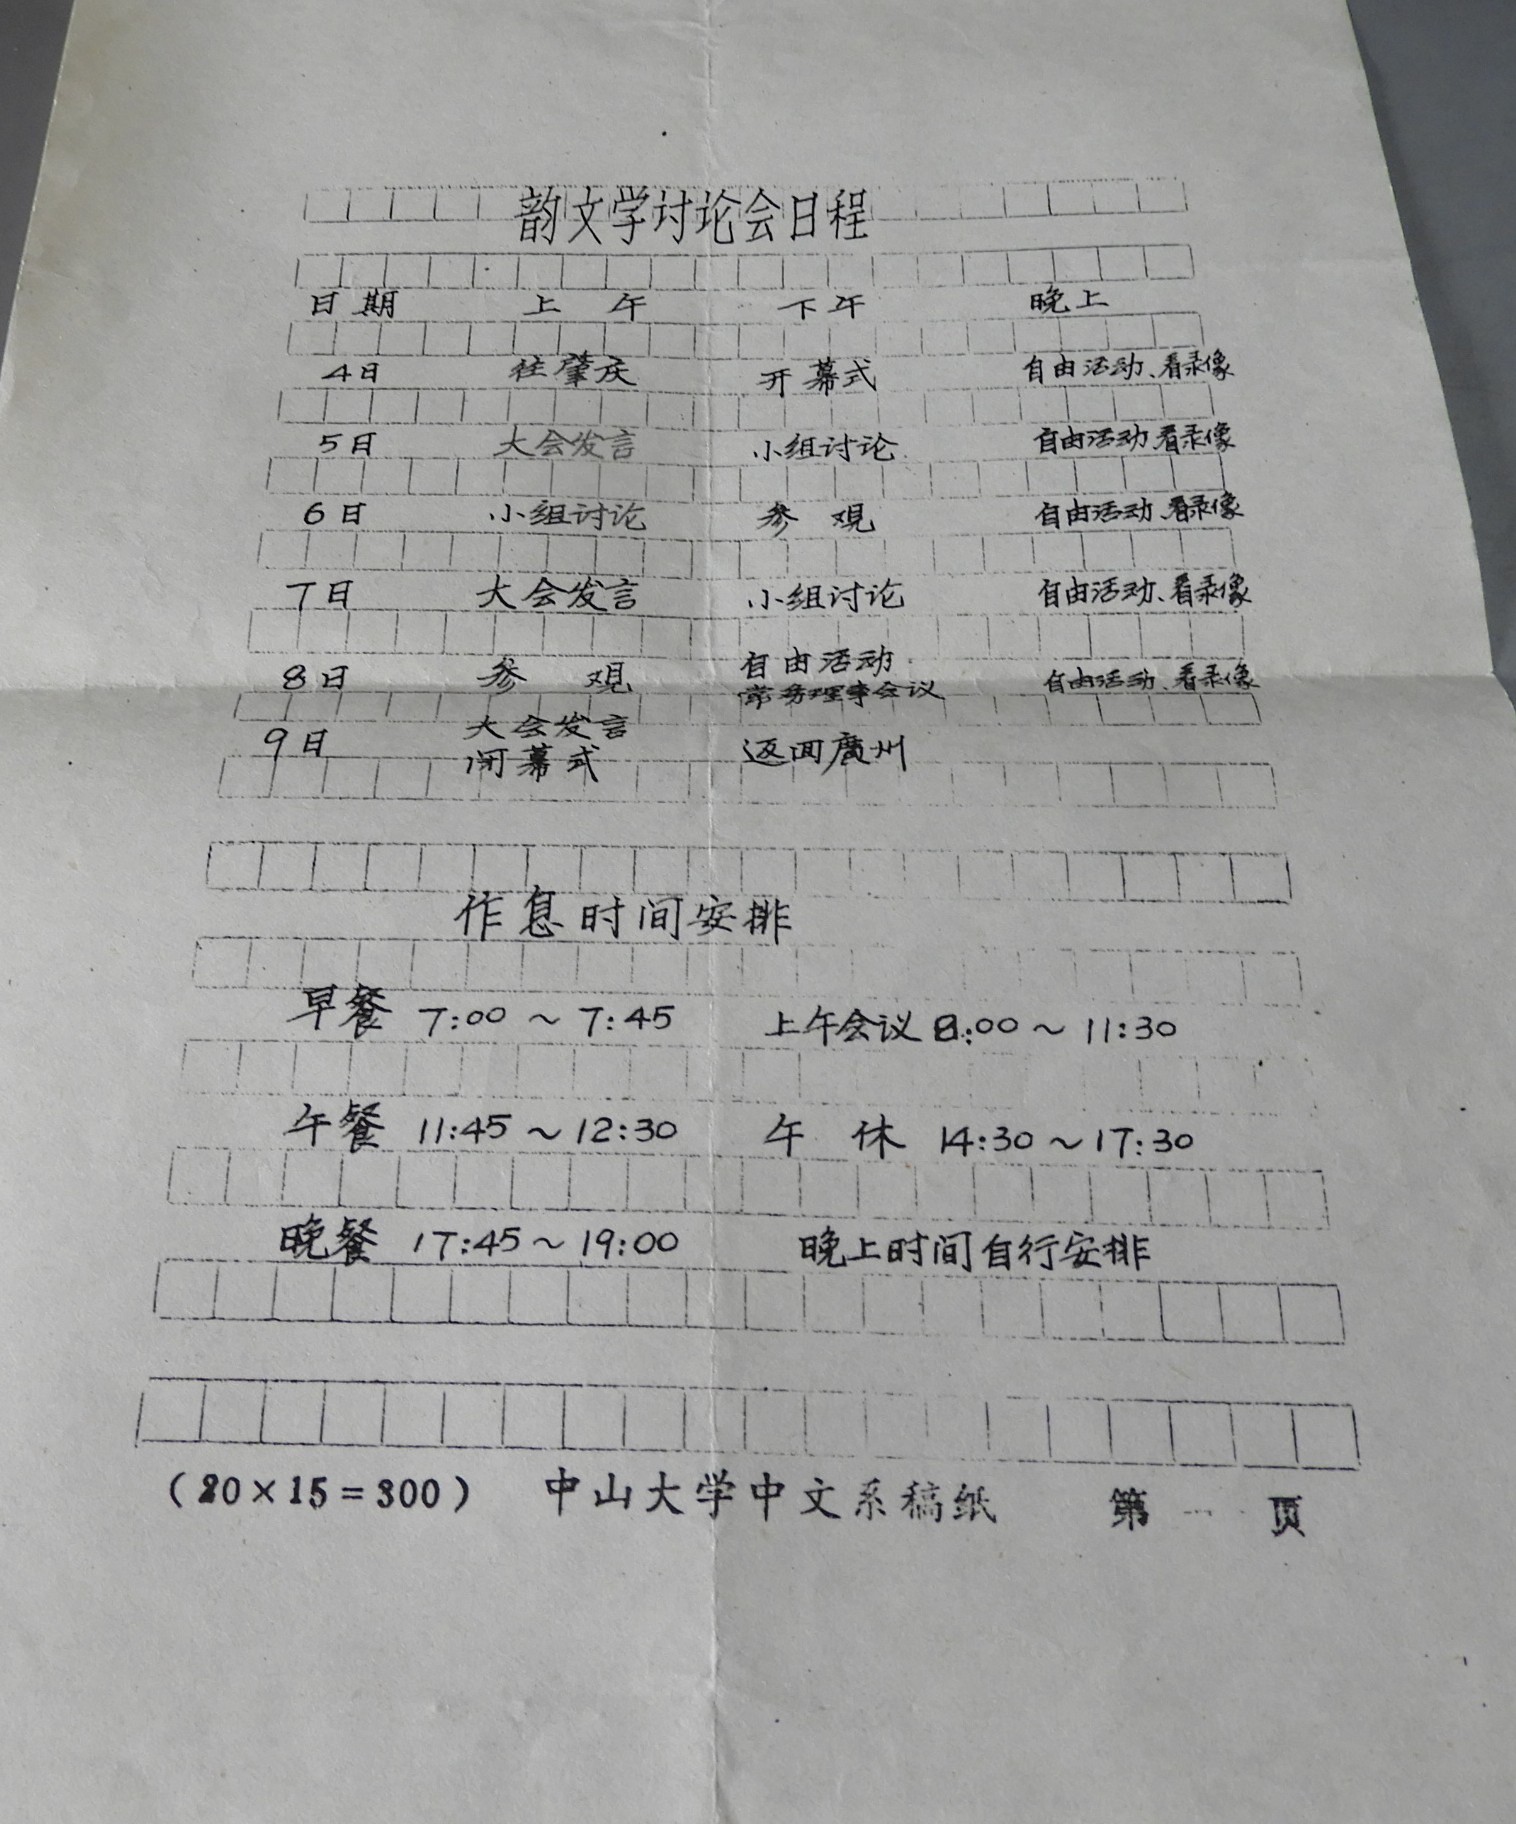 韵文学讨论会日程
日期 上午 下午 晚上
4日 往肇庆 开幕式 自由活动、看录像
5日 大会发言 小组讨论 自由活动 看录像
6日 小组讨论 参观 自由活动、看录像
7日 大会发言 小组讨论 自由活动、看录像
8日 参观 自由活动 自由活动、看录像
常务理事会议
9日 大会发言 返回廣州
闭幕式
作息时间安排
早餐 7:00～7:45 上午会议 8:00～11:30
午餐 11:45～12:30 午休 14:30～17:30
晚餐 17:45～19:00 晚上时间自行安排
(20×15=300) 中山大学中文系稿纸 第 页